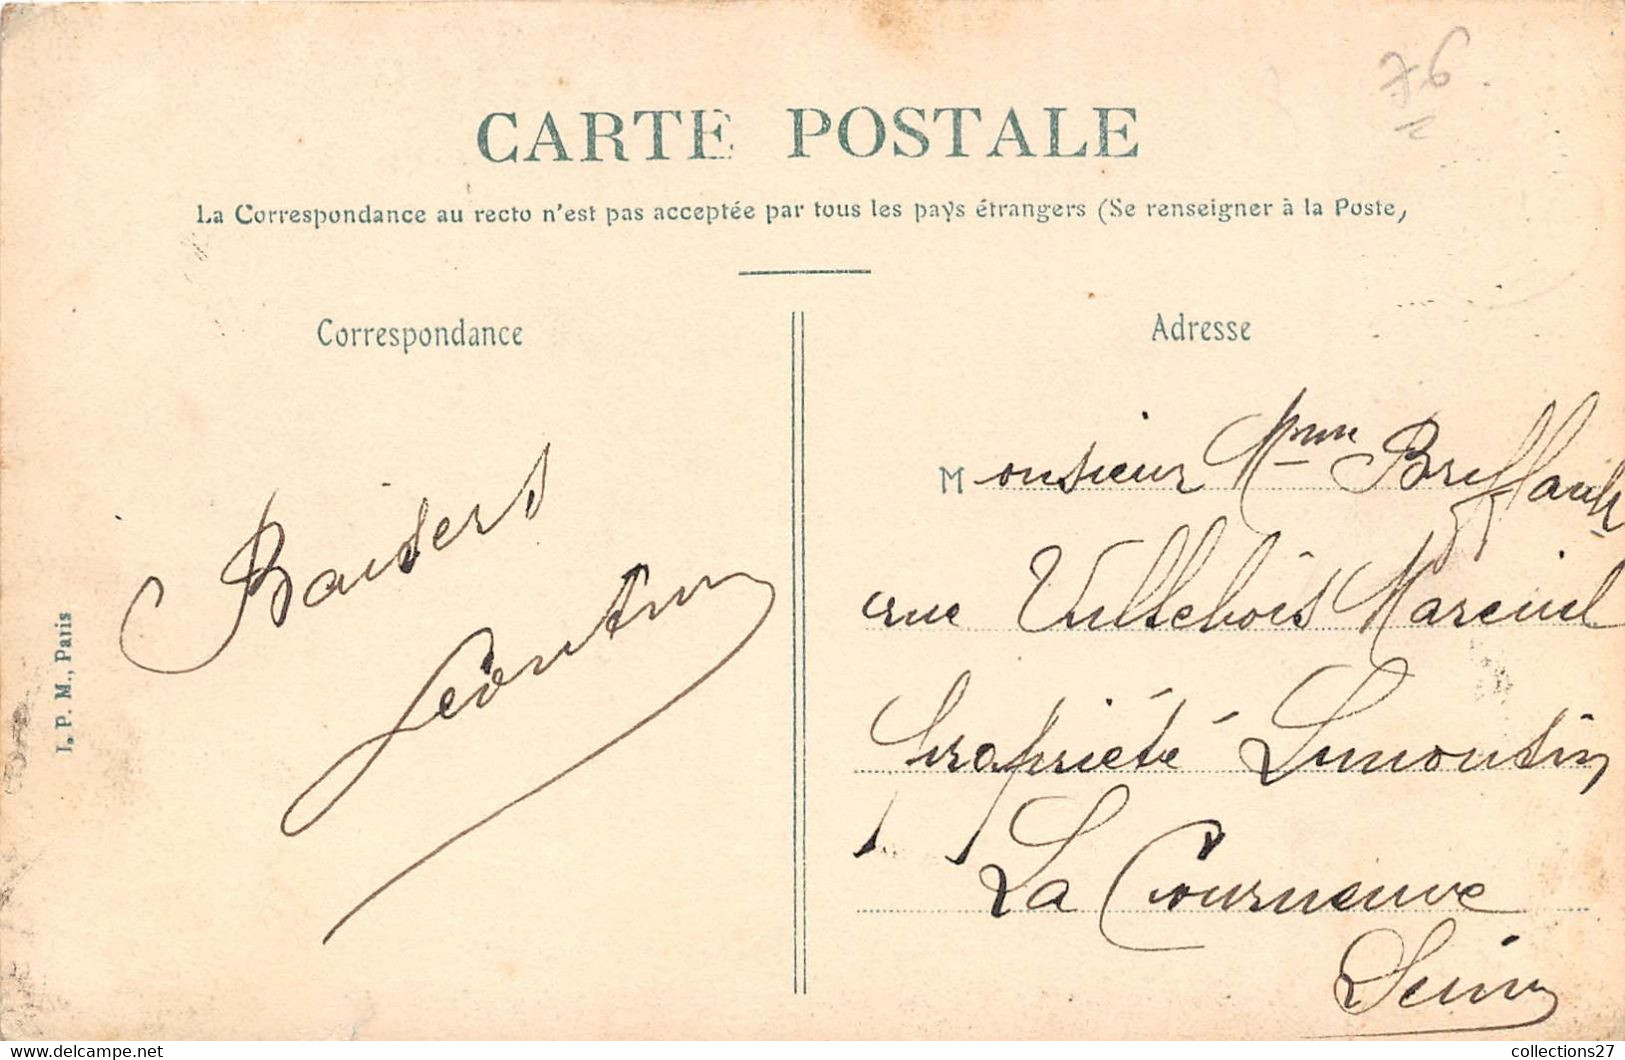 76
CARTE POSTALE
La Correspondance au recto n'est pas acceptée par tous les pays étrangers (Se renseigner à la Poste)
Correspondance
Adresse
Baisers
Léontine
Monsieur Mme Briffault
rue Villebois Mareuil
Propriété Limousin
La Courneuve
Seine
I. P. M., Paris
collections27